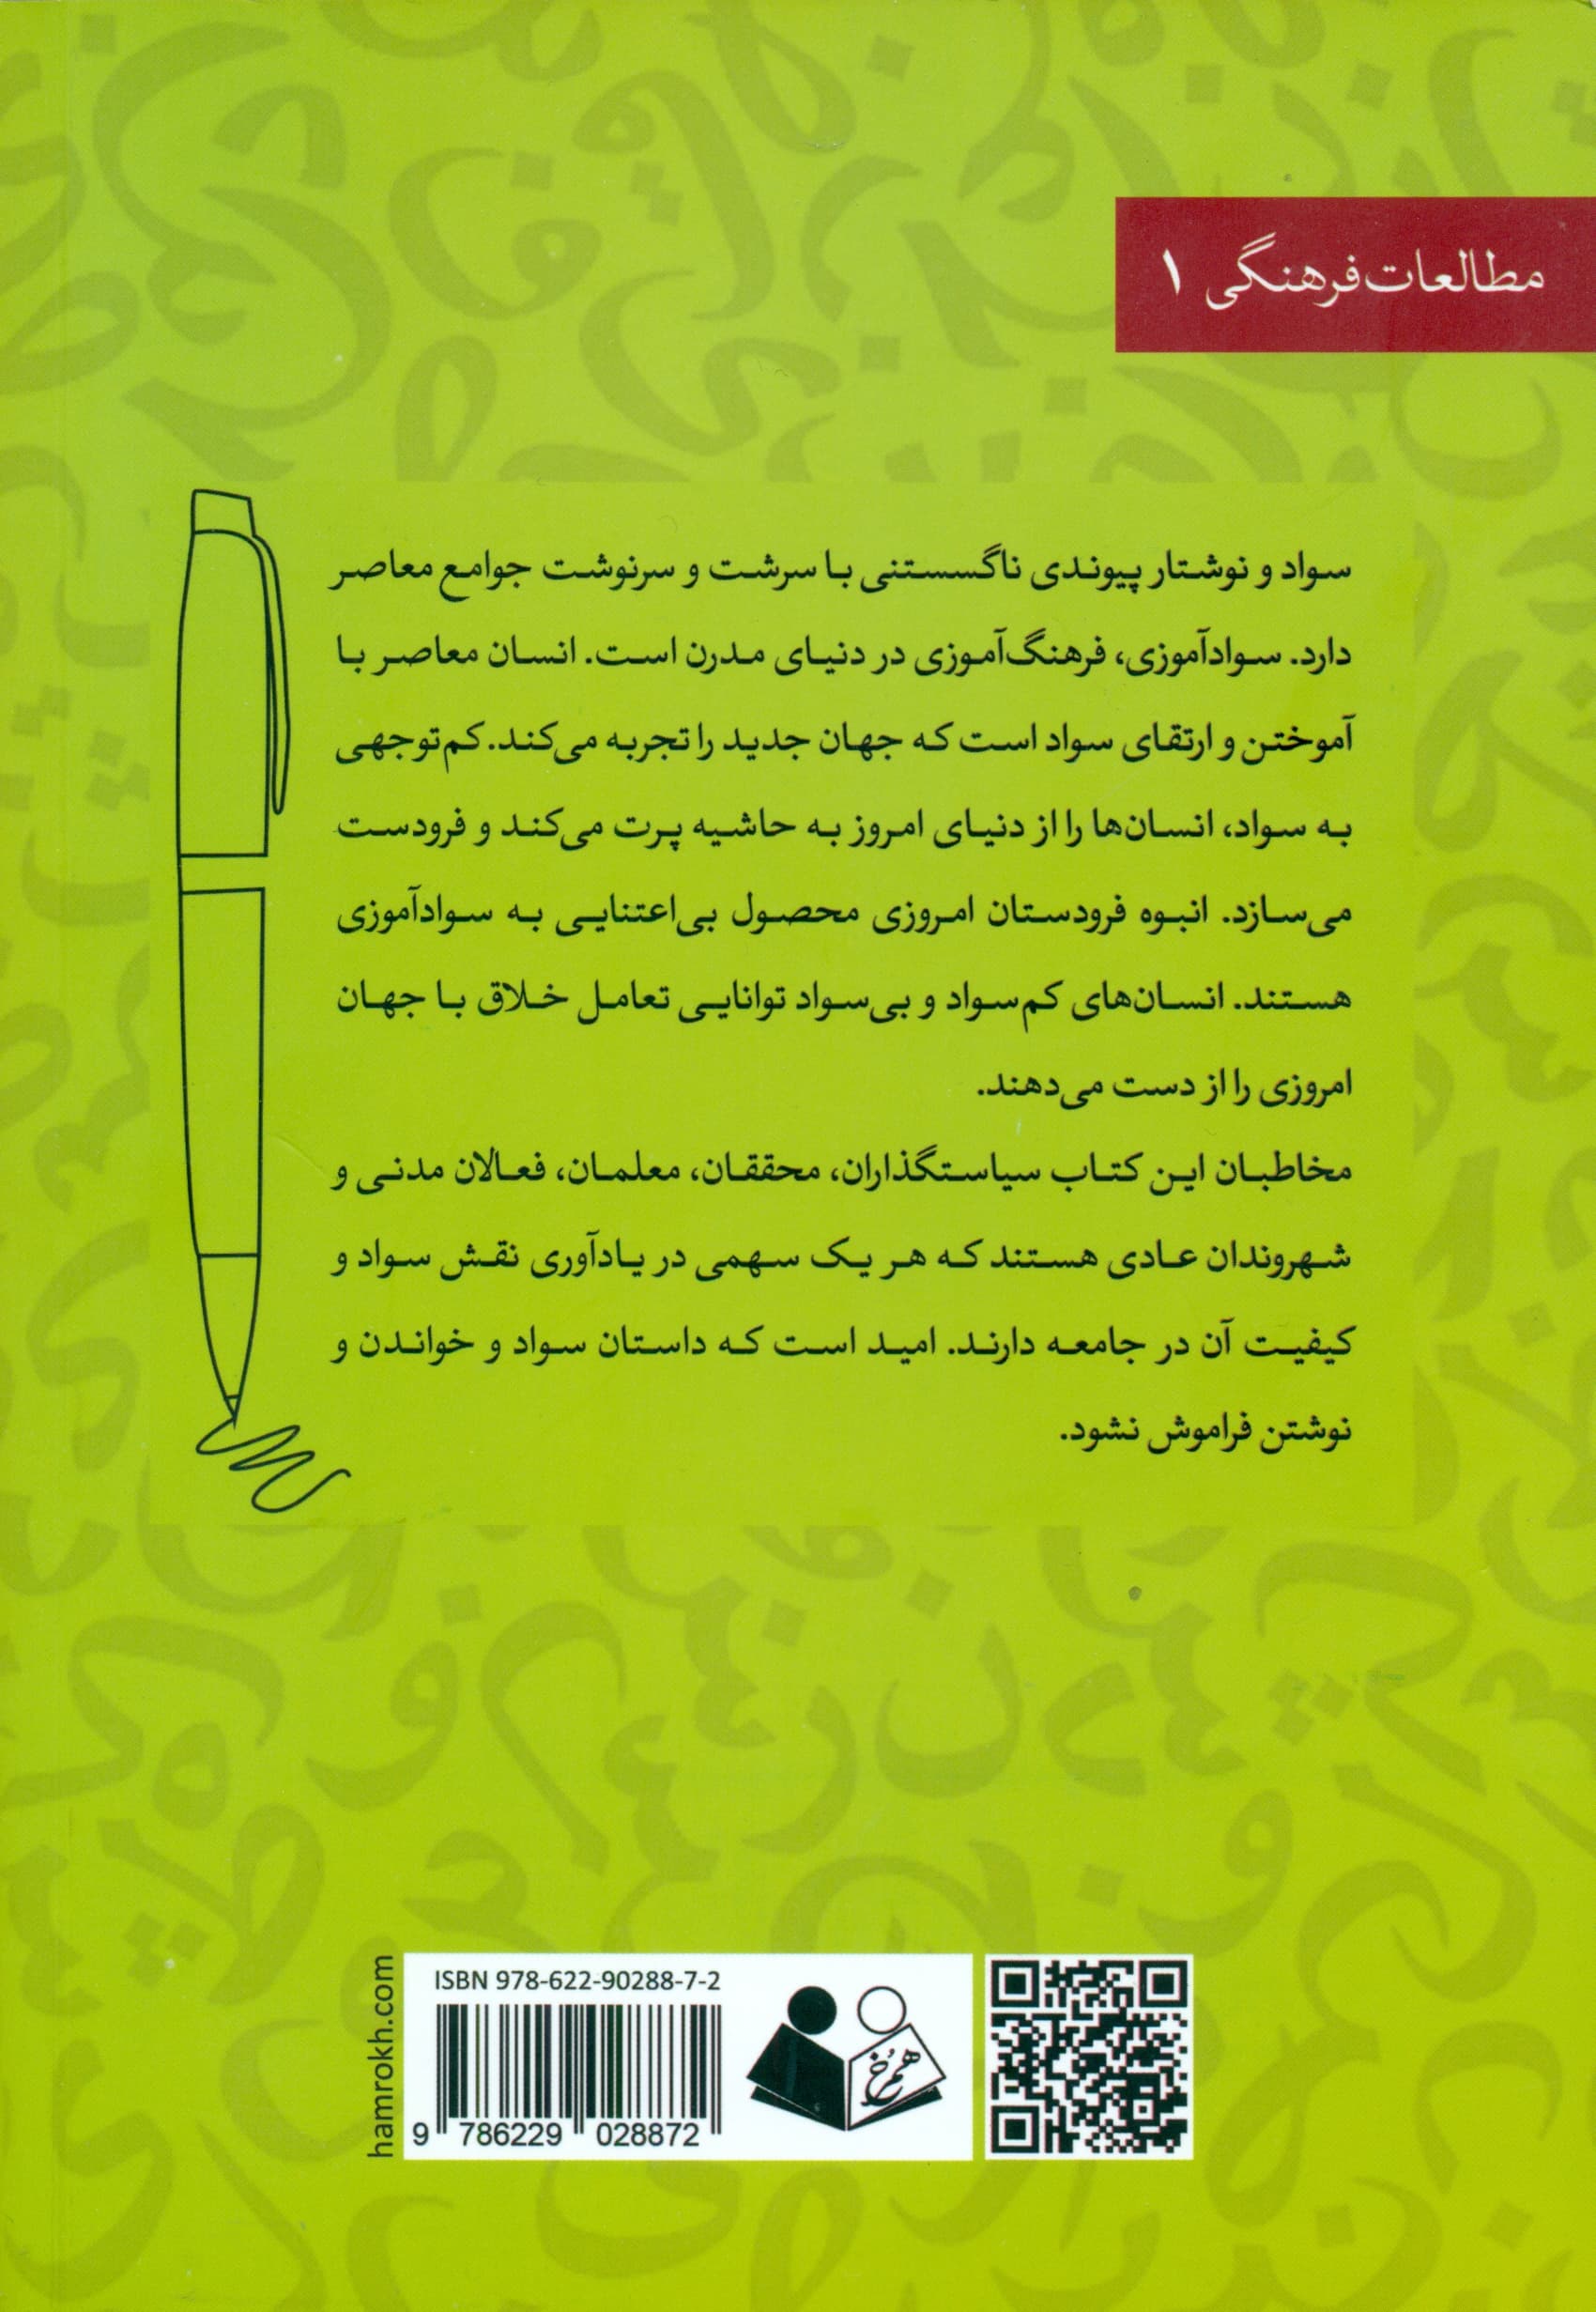 مطالعات فرهنگی ۱
سواد و نوشتار پیوندی ناگسستنی با سرشت و سرنوشت جوامع معاصر
دارد. سوادآموزی، فرهنگ‌آموزی در دنیای مدرن است. انسان معاصر با
آموختن و ارتقای سواد است که جهان جدید را تجربه می‌کند. کم‌توجهی
به سواد، انسان‌ها را از دنیای امروز به حاشیه پرت می‌کند و فرودست
می‌سازد. انبوه فرودستان امروزی محصول بی‌اعتنایی به سوادآموزی
هستند. انسان‌های کم‌سواد و بی‌سواد توانایی تعامل خلاق با جهان
امروزی را از دست می‌دهند.
مخاطبان این کتاب سیاستگذاران، محققان، معلمان، فعالان مدنی و
شهروندان عادی هستند که هر یک سهمی در یادآوری نقش سواد و
کیفیت آن در جامعه دارند. امید است که داستان سواد و خواندن و
نوشتن فراموش نشود.
hamrokh.com
ISBN 978-622-90288-7-2
9 786229 028872
همرخ